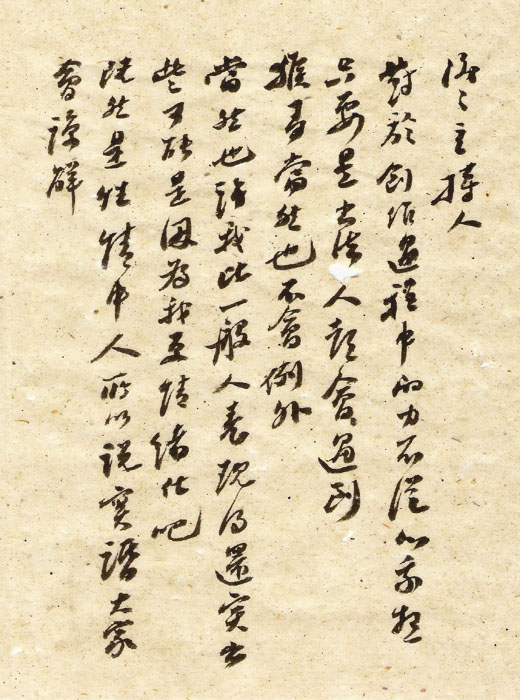 谢谢主持人
對於創作過程中的力不從心我想
只要是書法人都會遇到
猴哥當然也不會例外
當然也許我比一般人表現得還突出
這可能是因為我至情緒化吧
既然是性情中人所以說實話大家
會諒解